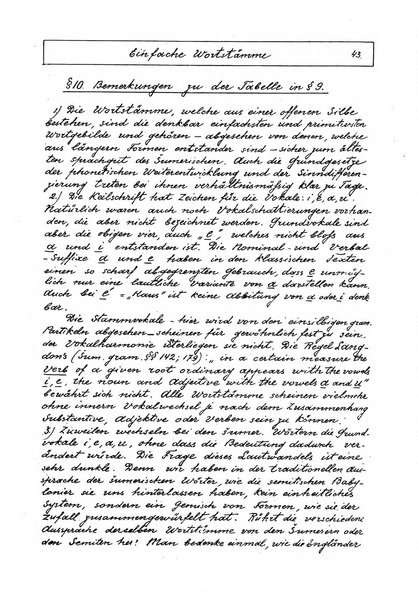 Einfache Wortstämme 43.
§10. Bemerkungen zu der Tabelle in § 9.
1) Die Wortstämme, welche aus einer offenen Silbe
bestehen, sind die denkbar einfachsten und primitivsten
Wortgebilde und gehören – abgesehen von denen, welche
aus längern Formen entstanden sind – sicher zum ältes-
ten Sprachgut des Sumerischen. Auch die Grundgesetze
der phonetischen Weiterentwicklung und der Sinndifferen-
zierung treten bei ihnen verhältnismäßig klar zu Tage.
2.) Die Keilschrift hat Zeichen für die Vokale: i, e, a, u.
Natürlich waren auch noch Vokalschattierungen vorhan-
den, die aber nicht bezeichnet werden. Grundvokale sind
aber die obigen vier, auch "e", welches nicht bloß aus
a und i entstanden ist. Die Nominal- und Verbal-
Suffixe a und e haben in den klassischen Texten
einen so scharf abgegrenzten Gebrauch, dass e unmög-
lich nur eine lautliche Variante von a darstellen kann.
Auch bei é "Haus" ist keine Ableitung von a oder i denk-
bar.
Die Stammvokale – hier wird von den einsilbigen gram.
Partikeln abgesehen – scheinen für gewöhnlich fest zu sein.
der Vokalharmonie unterliegen sie nicht. Die Regel Lang-
don's (Sum. gram. §§ 142; 179): „in a certain measure the
verb of a given root ordinary appears with the vowels
i, e, the noun and adjective with the vowels a and u"
bewährt sich nicht. Alle Wortstämme scheinen vielmehr
ohne innern Vokalwechsel je nach dem Zusammenhang
Substantive, Adjektive oder Verben sein zu können.
3.) Zuweilen wechseln bei den sumer. Wörtern die Grund-
vokale i, e, a, u, ohne dass die Bedeutung dadurch ver-
ändert würde. Die Frage dieses Lautwandels ist eine
sehr dunkle. Denn wir haben in der traditionellen Aus-
sprache der sumerischen Wörter, wie die semitischen Baby-
lonier sie uns hinterlassen haben, kein einheitliches
System, sondern ein Gemisch von Formen, wie sie der
Zufall zusammengewürfelt hat. Rührt die verschiedene
Aussprache derselben Wortstämme von den Sumerern oder
den Semiten her? Man bedenke einmal, wie die Engländer